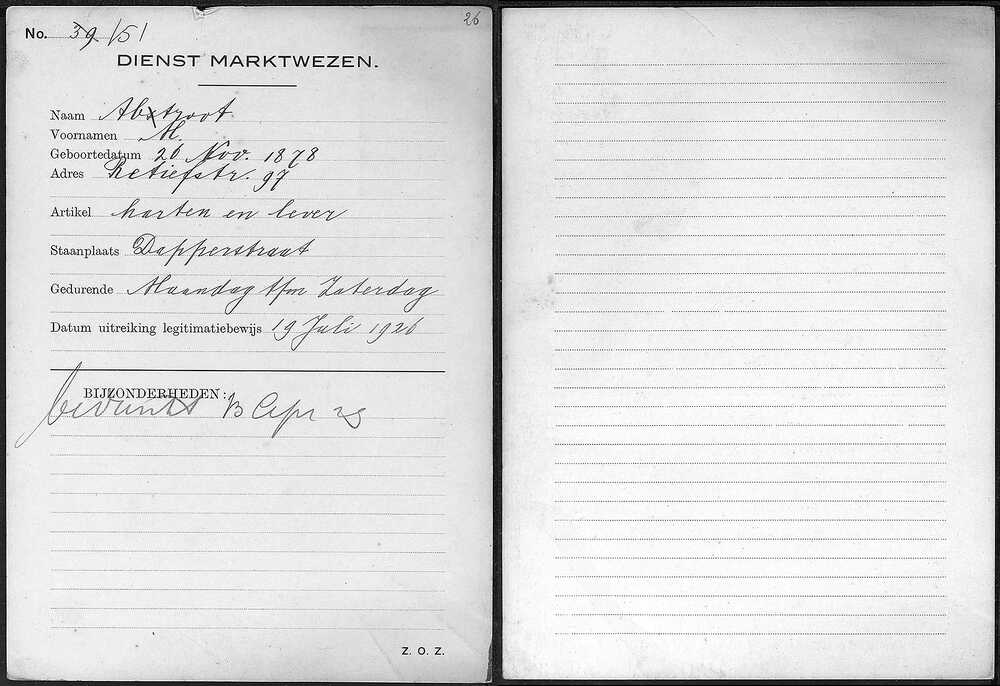 26
No. 39/51
DIENST MARKTWEZEN.
Naam Abstroot
Voornamen M.
Geboortedatum 26 Nov. 1878
Adres Retiefstr. 97
Artikel harten en lever
Staanplaats Dapperstraat
Gedurende Maandag t/m Zaterdag
Datum uitreiking legitimatiebewijs 19 Juli 1926
BIJZONDERHEDEN:
Bedankt 13 Apr 29
Z. O. Z.